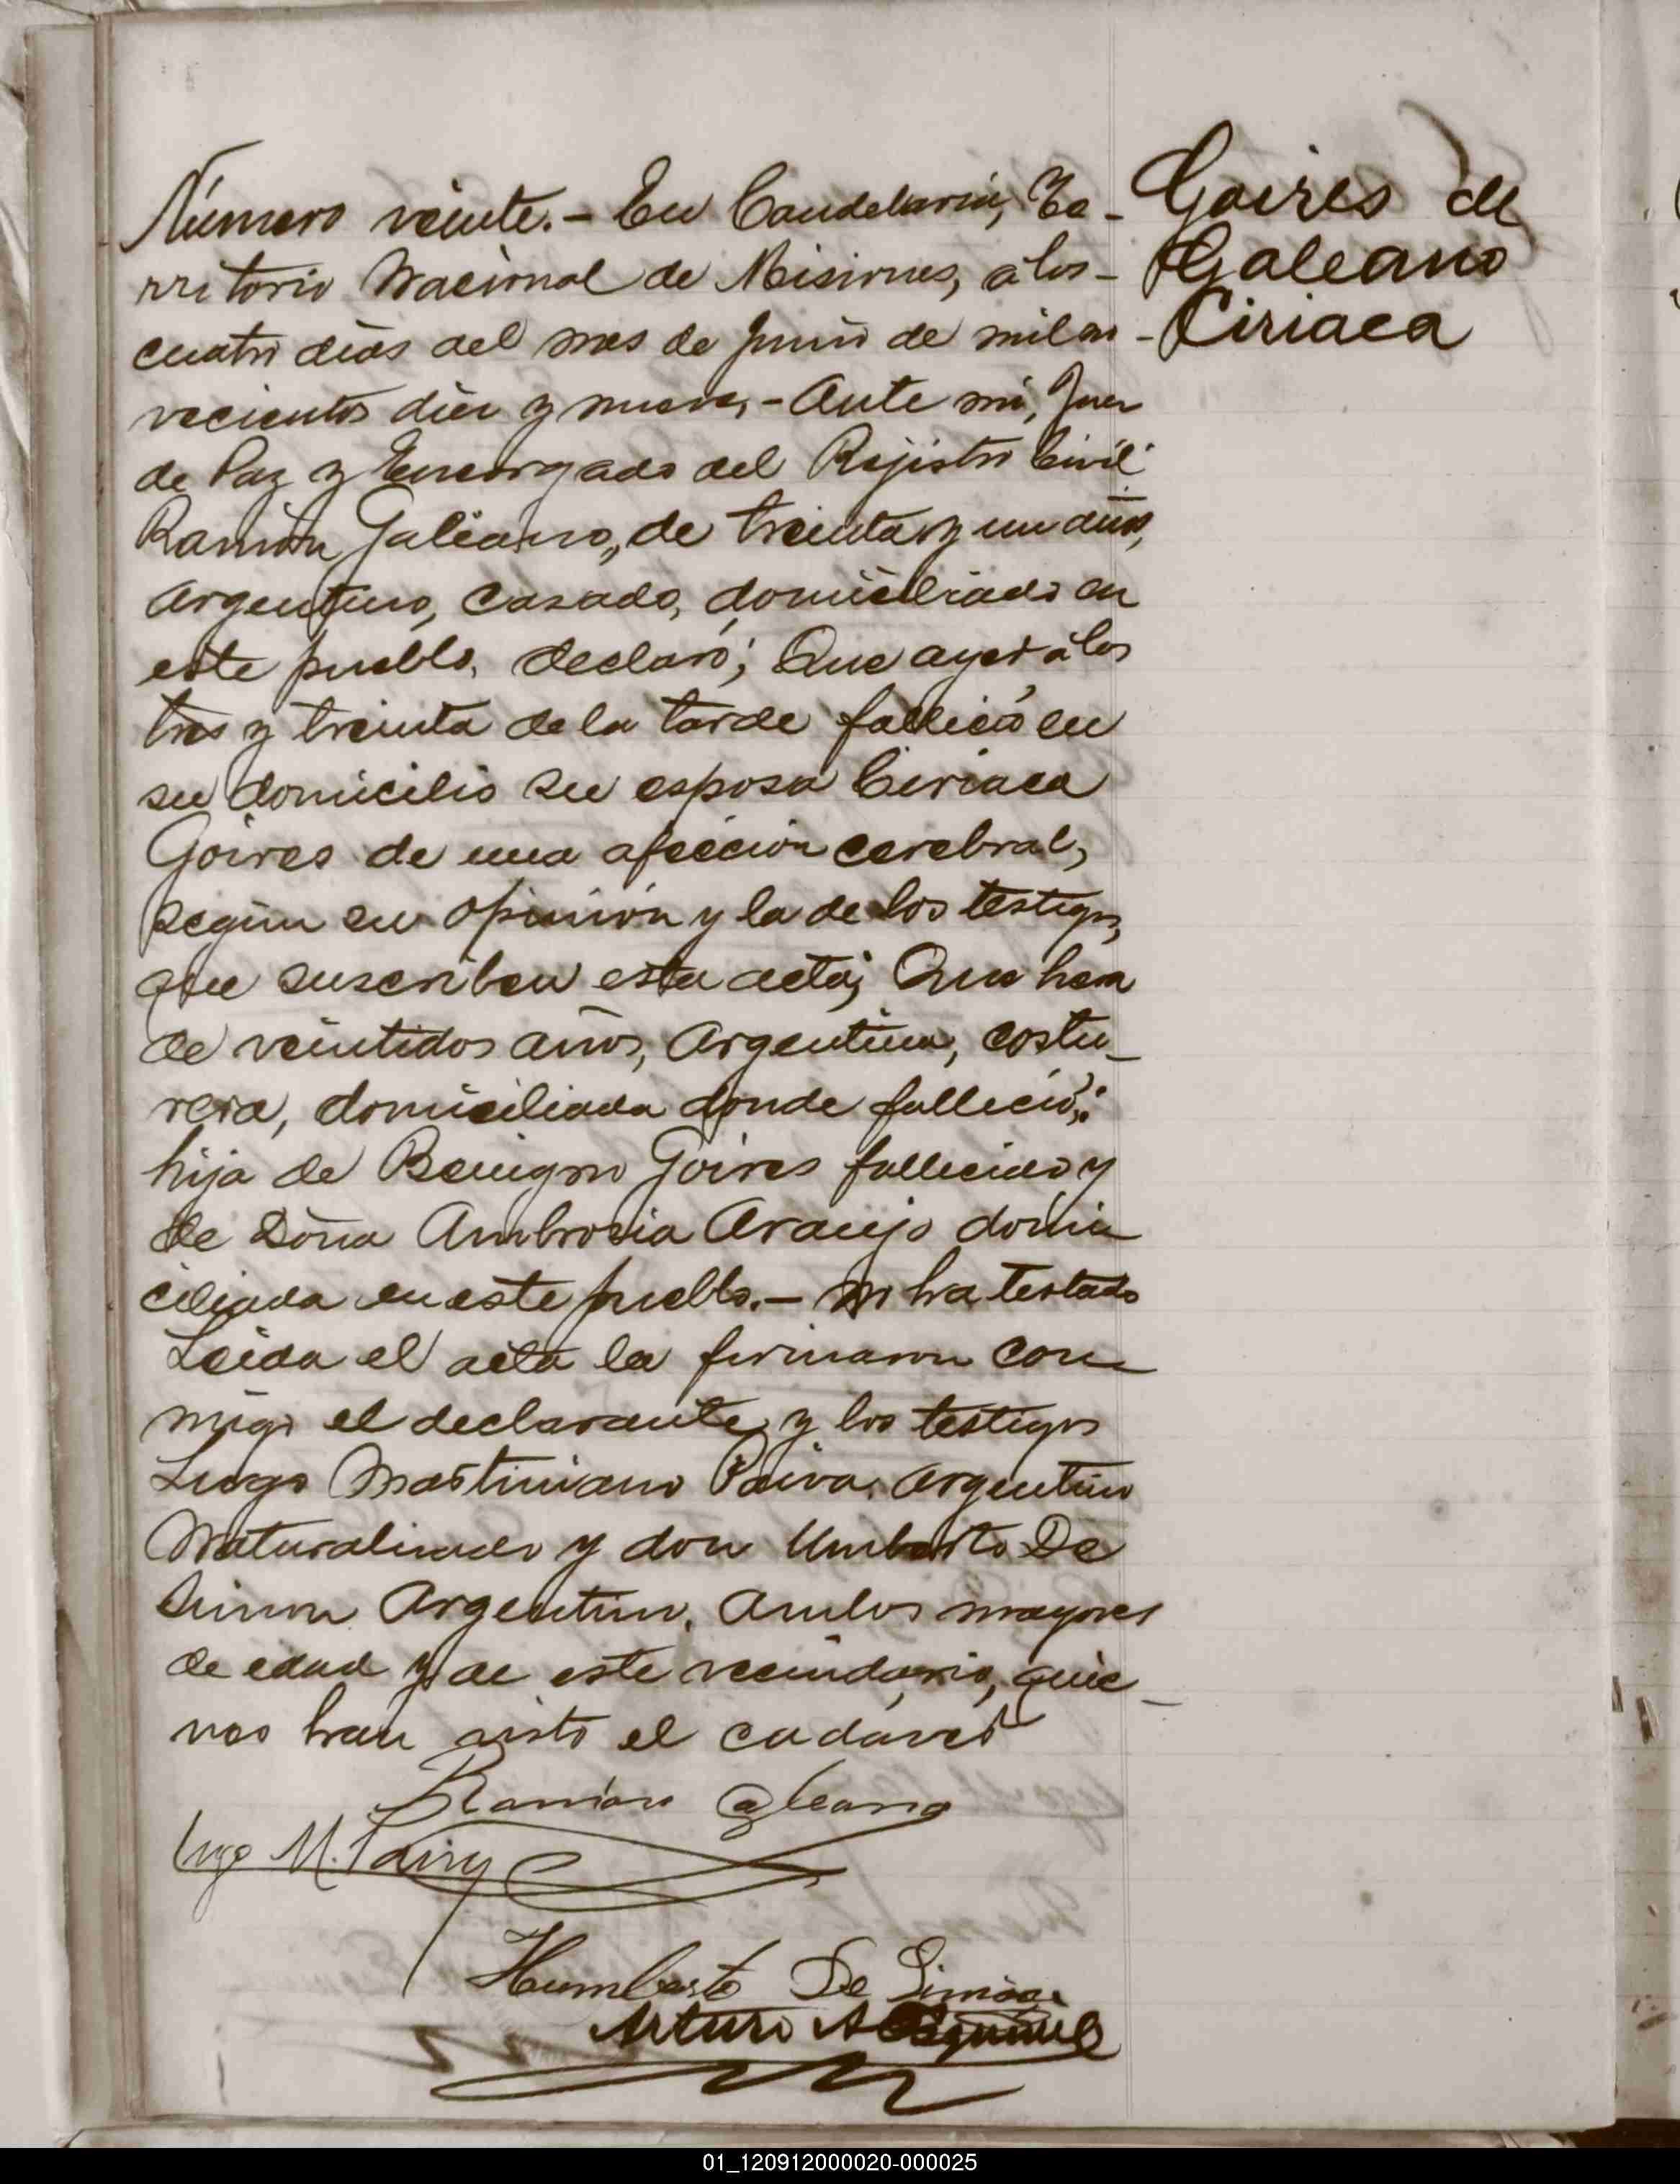 Número veinte.- En Candelaria, Te-
rritorio Nacional de Misiones, á los-
cuatro dias del mes de Junio de mil no-
vecientos diez y nueve,- Ante mi, Juez
de Paz y Encargado del Rejistro Civil
Ramón Galeano, de treinta y un años,
Argentino, casado, domiciliado en
este pueblo, declaró; Que ayer á las
tres y treinta de la tarde falleció en
su domicilio su esposa Ciriaca
Goires de una afección cerebral,
según su opinión y la de los testigos,
que suscriben esta acta; Que
de veintidos años, Argentina, costu-
rera, domiciliada donde falleció;
hija de Benigno Goires fallecido y
de Doña Ambrosia Araujo domi
ciliada en este pueblo.- no ha testado
Leida el acta la firmaron con
migo el declarante y los testigos
Lugo Mastiniano Paiva, Argentino
Naturalizado y don Umberto De
Simon Argentino, Ambos mayores
de edad y de este vecindario, quie-
nes han visto el cadáver
Goires de
Galeano
Ciriaca
Ramón Galeano
Lugo M. Paiva
Humberto De Simon
Arturo A
01_120912000020-000025